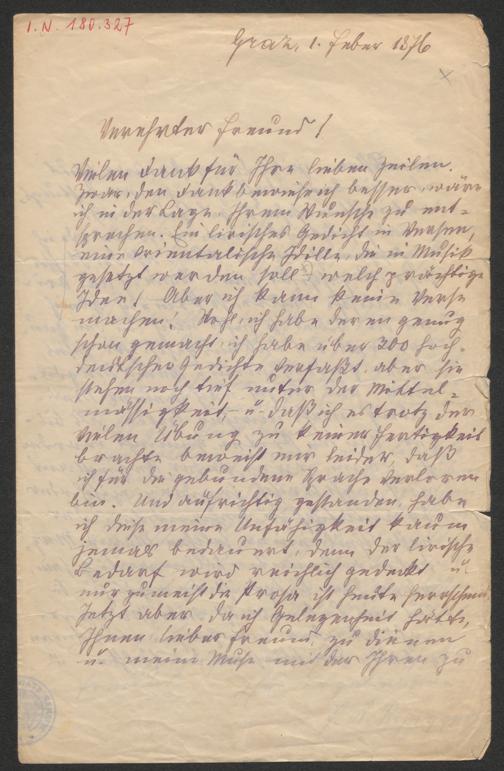 I.N. 180.327
Graz, 1. Feber 1876
Verehrter Freund!
Vielen Dank für Ihre lieben Zeilen.
Zwar, den Dank bewiese ich besser, wäre
ich in der Lage, Ihrem Wunsche zu ent-
sprechen. Ein lirisches Gedicht in Versen,
eine orientalische Idille, die in Musik
gesetzt werden soll – welch prächtige
Idee! Aber ich kann keine Verse
machen! Wohl, ich habe deren genug
schon gemacht, ich habe über 300 hoch-
deutsche Gedichte verfaßt, aber sie
stehen noch tief unter der Mittel-
mässigkeit, – u. daß ich es trotz der
vielen Übung zu keiner Fertigkeit
brachte beweist mir leider, daß
ich für die gebundene Sprache verloren
bin. Und aufrichtig gestanden, habe
ich diese meine Unfähigkeit kaum
jemals bedauert, denn der lirische
Bedarf wird reichlich gedeckt u.
nur zumeist die Prosa ist heute herrschend.
Jetzt aber da ich Gelegenheit hätte,
Ihnen lieber Freund, zu dienen
u. meine Muse mit der Ihren zu